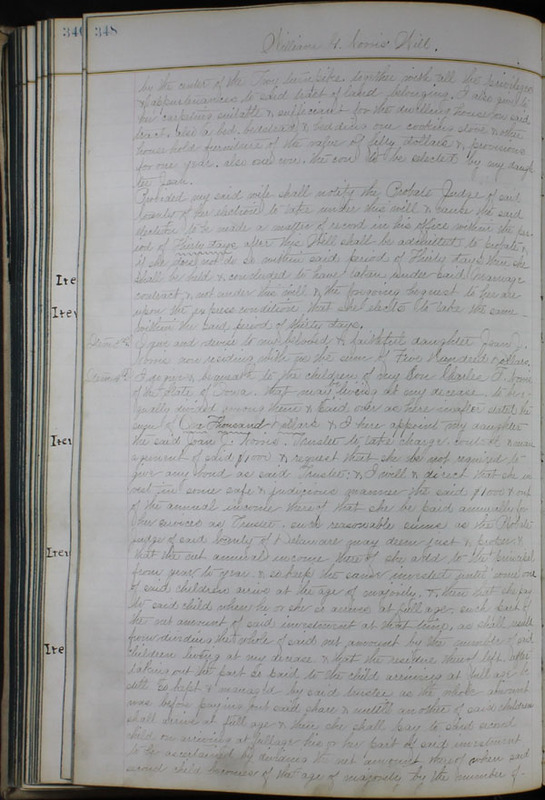 346 348
William G. Norris Will.
by the center of the Troy turnpike, together with all the privileges
& appurtenances to said tract of land belonging. I also give to
her carpeting suitable & sufficient for the dwelling house on said
tract. also a bed, bedstead & bedding one cooking stove & other
household furniture of the value of fifty dollars & provisions
for one year. also one cow, the cow to be selected by my daugh
ter Joan.
Provided my said wife shall notify the Probate Judge of said
County of her election to take under this will & cause the said
election to be made a matter of record in his office within the per
iod of Thirty days after this Will shall be admitted to probate &
if she does not do so within said period of Thirty days then she
Ite
shall be held & concluded to have taken under said marriage
contract & not under this will & the foregoing bequest to her are
Item
upon the express condition that she elects to take the same
within the said period of thirty days.
Item I give and devise to my beloved & faithful daughter Joan J.
Norris now residing with me the sum of Five Hundred dollars.
Item I give & bequeath to the children of my Son Charles F. Norris
of the State of Iowa, that may be living at my decease, to be e
qually divided among them & paid over as here inafter stated the
sum of One Thousand dollars & I here appoint my daughter
Item
the said Joan J. Norris. Trustee to take charge, control & man
agement of said $1000 & request that she be not required to
give any bond as said Trustee; & I will & direct that she in
vest in some safe & judicious manner the said $1000 & out
of the annual income thereof that she be paid annually for
her services as Trustee such reasonable sums as the Probate
Judge of said County of Delaware may deem just & proper &
Item
that the net annual income thereof she add to the principal
from year to year & so keep the same invested until some one
of said children arrive at the age of majority, & then that she pay
to said child when he or she so arrives at full age, such part of
the net amount of said investment at that time, as shall result
from dividing the whole of said net amount by the number of said
Ite
children living at my decease & that the residue thereof left after
taking out the part so paid to the child arriving at full age be
still so kept & managed by said trustee as the whole amount
was before paying out said share & until another of said children
shall arrive at full age & then she shall pay to said second
child on arriving at full age his or her part of said investment
to be ascertained by dividing the net amount thereof when said
second child becomes of the age of majority by the number of